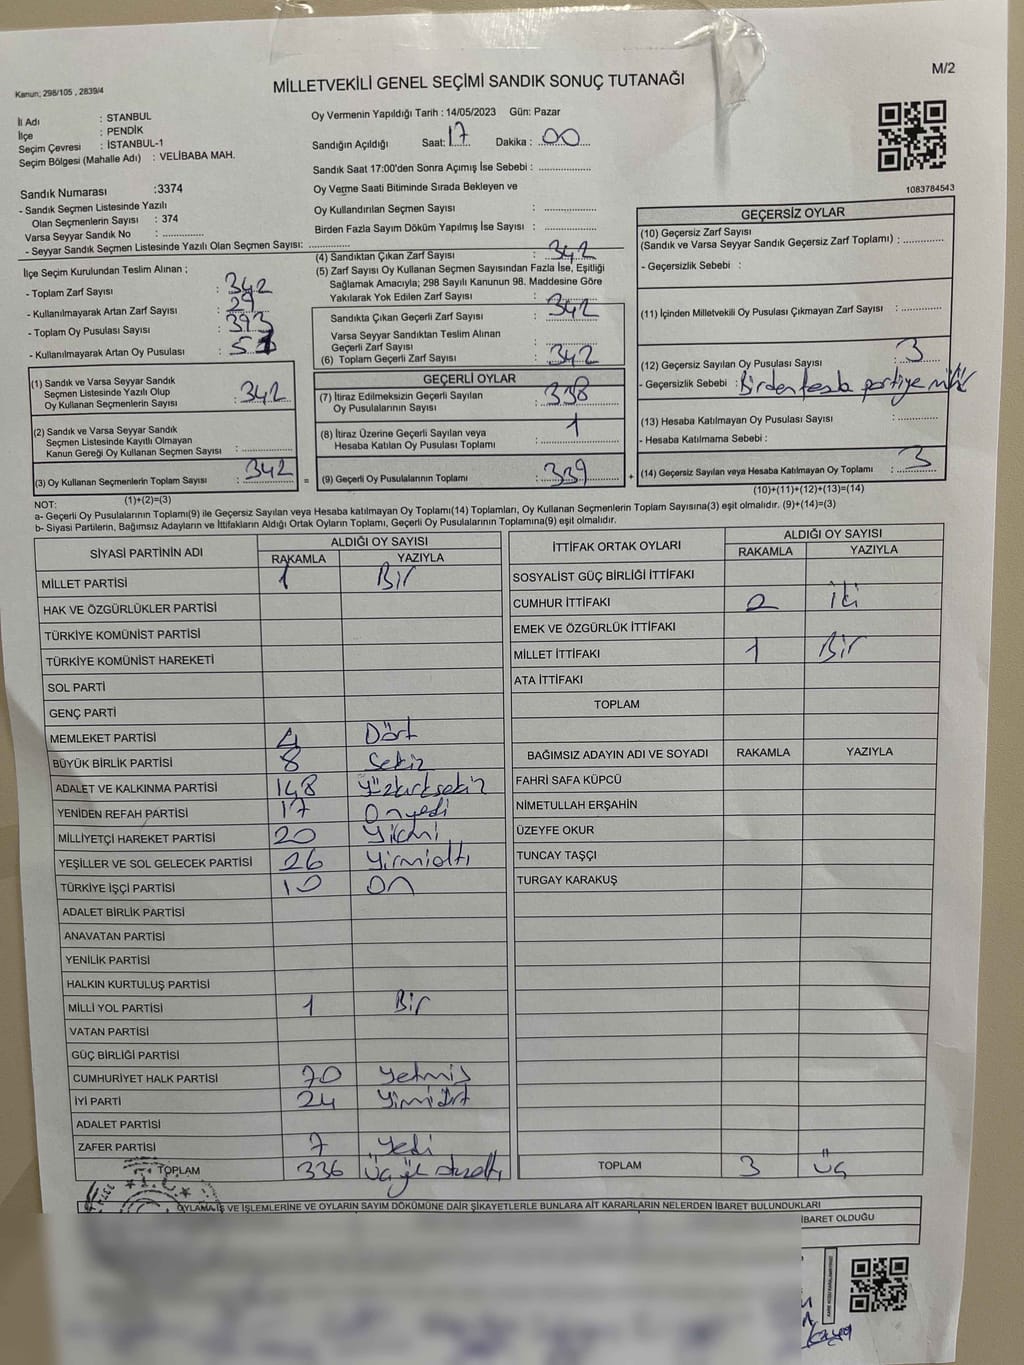 Kanun; 298/105 , 2839/4
MİLLETVEKİLİ GENEL SEÇİMİ SANDIK SONUÇ TUTANAĞI
M/2
İl Adı : STANBUL
İlçe : PENDİK
Seçim Çevresi : İSTANBUL-1
Seçim Bölgesi (Mahalle Adı) : VELİBABA MAH.
Sandık Numarası :3374
- Sandık Seçmen Listesinde Yazılı
Olan Seçmenlerin Sayısı : 374
Varsa Seyyar Sandık No : ..............
- Seyyar Sandık Seçmen Listesinde Yazılı Olan Seçmen Sayısı: ..............
Oy Vermenin Yapıldığı Tarih : 14/05/2023 Gün: Pazar
Sandığın Açıldığı Saat: 17 Dakika : 00
Sandık Saat 17:00'den Sonra Açımış İse Sebebi : ..................
Oy Verme Saati Bitiminde Sırada Bekleyen ve
Oy Kullandırılan Seçmen Sayısı : ..................
Birden Fazla Sayım Döküm Yapılmış İse Sayısı : ..................
1083784543
İlçe Seçim Kurulundan Teslim Alınan ;
- Toplam Zarf Sayısı : 342
- Kullanılmayarak Artan Zarf Sayısı : 29
- Toplam Oy Pusulası Sayısı : 393
- Kullanılmayarak Artan Oy Pusulası : 51
(1) Sandık ve Varsa Seyyar Sandık
Seçmen Listesinde Yazılı Olup
Oy Kullanan Seçmenlerin Sayısı : 342
(2) Sandık ve Varsa Seyyar Sandık
Seçmen Listesinde Kayıtlı Olmayan
Kanun Gereği Oy Kullanan Seçmen Sayısı : ..............
(3) Oy Kullanan Seçmenlerin Toplam Sayısı : 342
(1)+(2)=(3)
(4) Sandıktan Çıkan Zarf Sayısı : 342
(5) Zarf Sayısı Oy Kullanan Seçmen Sayısından Fazla İse, Eşitliği
Sağlamak Amacıyla; 298 Sayılı Kanunun 98. Maddesine Göre
Yakılarak Yok Edilen Zarf Sayısı : ..................
Sandıkta Çıkan Geçerli Zarf Sayısı : 342
Varsa Seyyar Sandıktan Teslim Alınan
Geçerli Zarf Sayısı : ..................
(6) Toplam Geçerli Zarf Sayısı : 342
GEÇERLİ OYLAR
(7) İtiraz Edilmeksizin Geçerli Sayılan
Oy Pusulalarının Sayısı : 338
(8) İtiraz Üzerine Geçerli Sayılan veya
Hesaba Katılan Oy Pusulası Toplamı : 1
= (9) Geçerli Oy Pusulalarının Toplamı : 339 +
GEÇERSİZ OYLAR
(10) Geçersiz Zarf Sayısı
(Sandık ve Varsa Seyyar Sandık Geçersiz Zarf Toplamı) : ..............
- Geçersizlik Sebebi :
(11) İçinden Milletvekili Oy Pusulası Çıkmayan Zarf Sayısı : ..............
(12) Geçersiz Sayılan Oy Pusulası Sayısı : 3
- Geçersizlik Sebebi : Birden fazla partiye mühür
(13) Hesaba Katılmayan Oy Pusulası Sayısı : ..............
- Hesaba Katılmama Sebebi :
(14) Geçersiz Sayılan veya Hesaba Katılmayan Oy Toplamı : 3
(10)+(11)+(12)+(13)=(14)
NOT:
a- Geçerli Oy Pusulalarının Toplamı(9) ile Geçersiz Sayılan veya Hesaba katılmayan Oy Toplamı(14) Toplamları, Oy Kullanan Seçmenlerin Toplam Sayısına(3) eşit olmalıdır. (9)+(14)=(3)
b- Siyasi Partilerin, Bağımsız Adayların ve İttifakların Aldığı Ortak Oyların Toplamı, Geçerli Oy Pusulalarının Toplamına(9) eşit olmalıdır.
SİYASİ PARTİNİN ADI ALDIĞI OY SAYISI
RAKAMLA YAZIYLA
MİLLET PARTİSİ 1 Bir
HAK VE ÖZGÜRLÜKLER PARTİSİ
TÜRKİYE KOMÜNİST PARTİSİ
TÜRKİYE KOMÜNİST HAREKETİ
SOL PARTİ
GENÇ PARTİ
MEMLEKET PARTİSİ 4 Dört
BÜYÜK BİRLİK PARTİSİ 8 Sekiz
ADALET VE KALKINMA PARTİSİ 148 Yüzkırksekiz
YENİDEN REFAH PARTİSİ 17 Onyedi
MİLLİYETÇİ HAREKET PARTİSİ 20 Yirmi
YEŞİLLER VE SOL GELECEK PARTİSİ 26 Yirmialtı
TÜRKİYE İŞÇİ PARTİSİ 10 On
ADALET BİRLİK PARTİSİ
ANAVATAN PARTİSİ
YENİLİK PARTİSİ
HALKIN KURTULUŞ PARTİSİ
MİLLİ YOL PARTİSİ 1 Bir
VATAN PARTİSİ
GÜÇ BİRLİĞİ PARTİSİ
CUMHURİYET HALK PARTİSİ 70 Yetmiş
İYİ PARTİ 24 Yirmidört
ADALET PARTİSİ
ZAFER PARTİSİ 7 Yedi
TOPLAM 336 Üçyüz otuzaltı
İTTİFAK ORTAK OYLARI ALDIĞI OY SAYISI
RAKAMLA YAZIYLA
SOSYALİST GÜÇ BİRLİĞİ İTTİFAKI
CUMHUR İTTİFAKI 2 İki
EMEK VE ÖZGÜRLÜK İTTİFAKI
MİLLET İTTİFAKI 1 Bir
ATA İTTİFAKI
TOPLAM
BAĞIMSIZ ADAYIN ADI VE SOYADI RAKAMLA YAZIYLA
FAHRİ SAFA KÜPCÜ
NİMETULLAH ERŞAHİN
ÜZEYFE OKUR
TUNCAY TAŞÇI
TURGAY KARAKUŞ
TOPLAM 3 Üç
T.C.
OYLAMA İŞ VE İŞLEMLERİNE VE OYLARIN SAYIM DÖKÜMÜNE DAİR ŞİKAYETLERLE BUNLARA AİT KARARLARIN NELERDEN İBARET BULUNDUKLARI
İBARET OLDUĞU